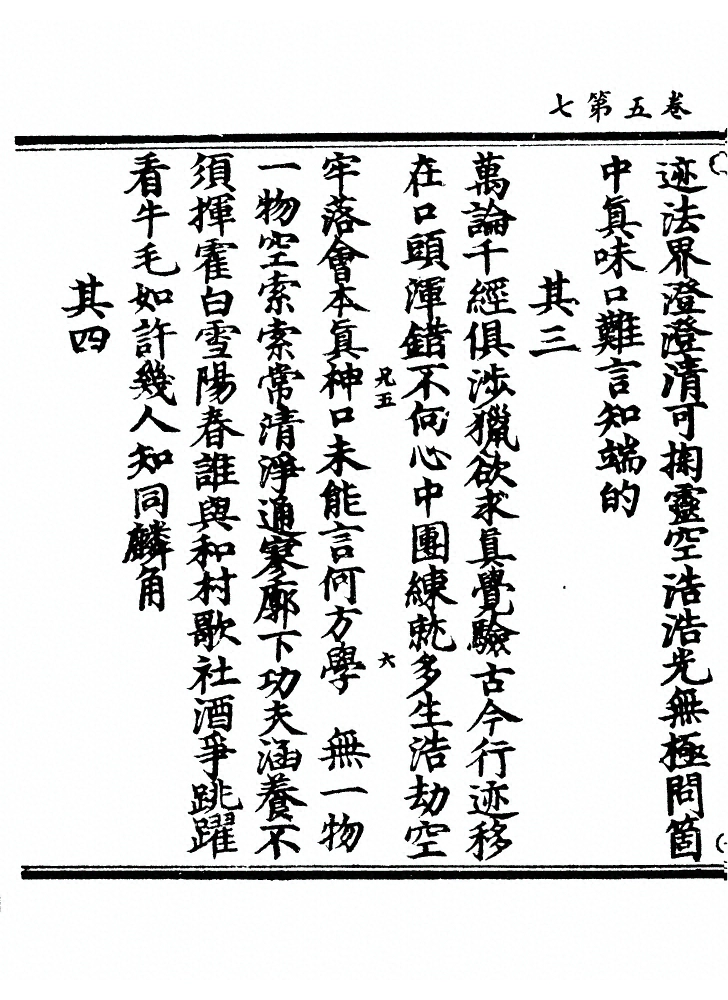 卷五第七
迹法界澄澄清可掬靈空浩浩光無極問箇
中眞味口難言知端的
其三
萬論千經俱涉獵欲求眞覺驗古今行迹移
在口頭渾錯不何心中團練就多生浩劫空
兄五
六
牢落會本眞神口未能言何方學　無一物
一物空索索常清淨通寥廓下功夫涵養不
須揮霍白雪陽春誰與和村歌社酒爭跳躍
看牛毛如許幾人知同麟角
其四